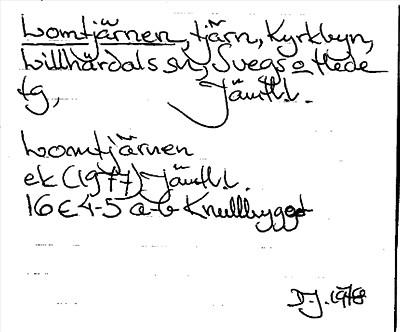 Lomtjärnen, tjärn, Kyrkbyn,
Lillhärdals sn, Svegs o Hede
tg, Jämtl.l.
Lomtjärnen
ek (1977) Jämtl.l.
16 E 4-5 a-b Knullbygget
D-J. 1978